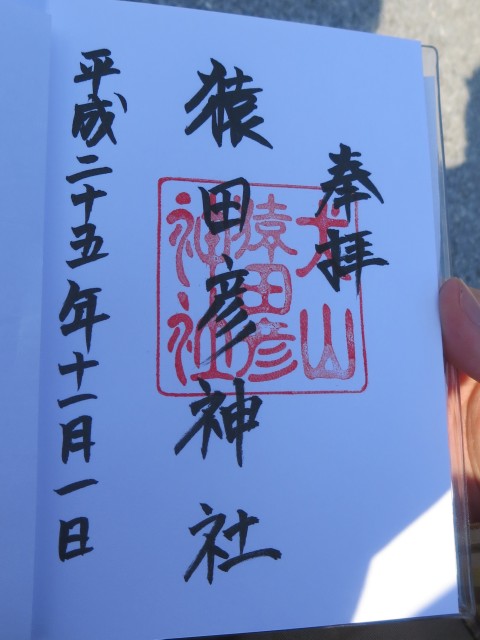 奉拝
猿田彦神社
平成二十五年十一月一日
犬山
猿田彦
神社